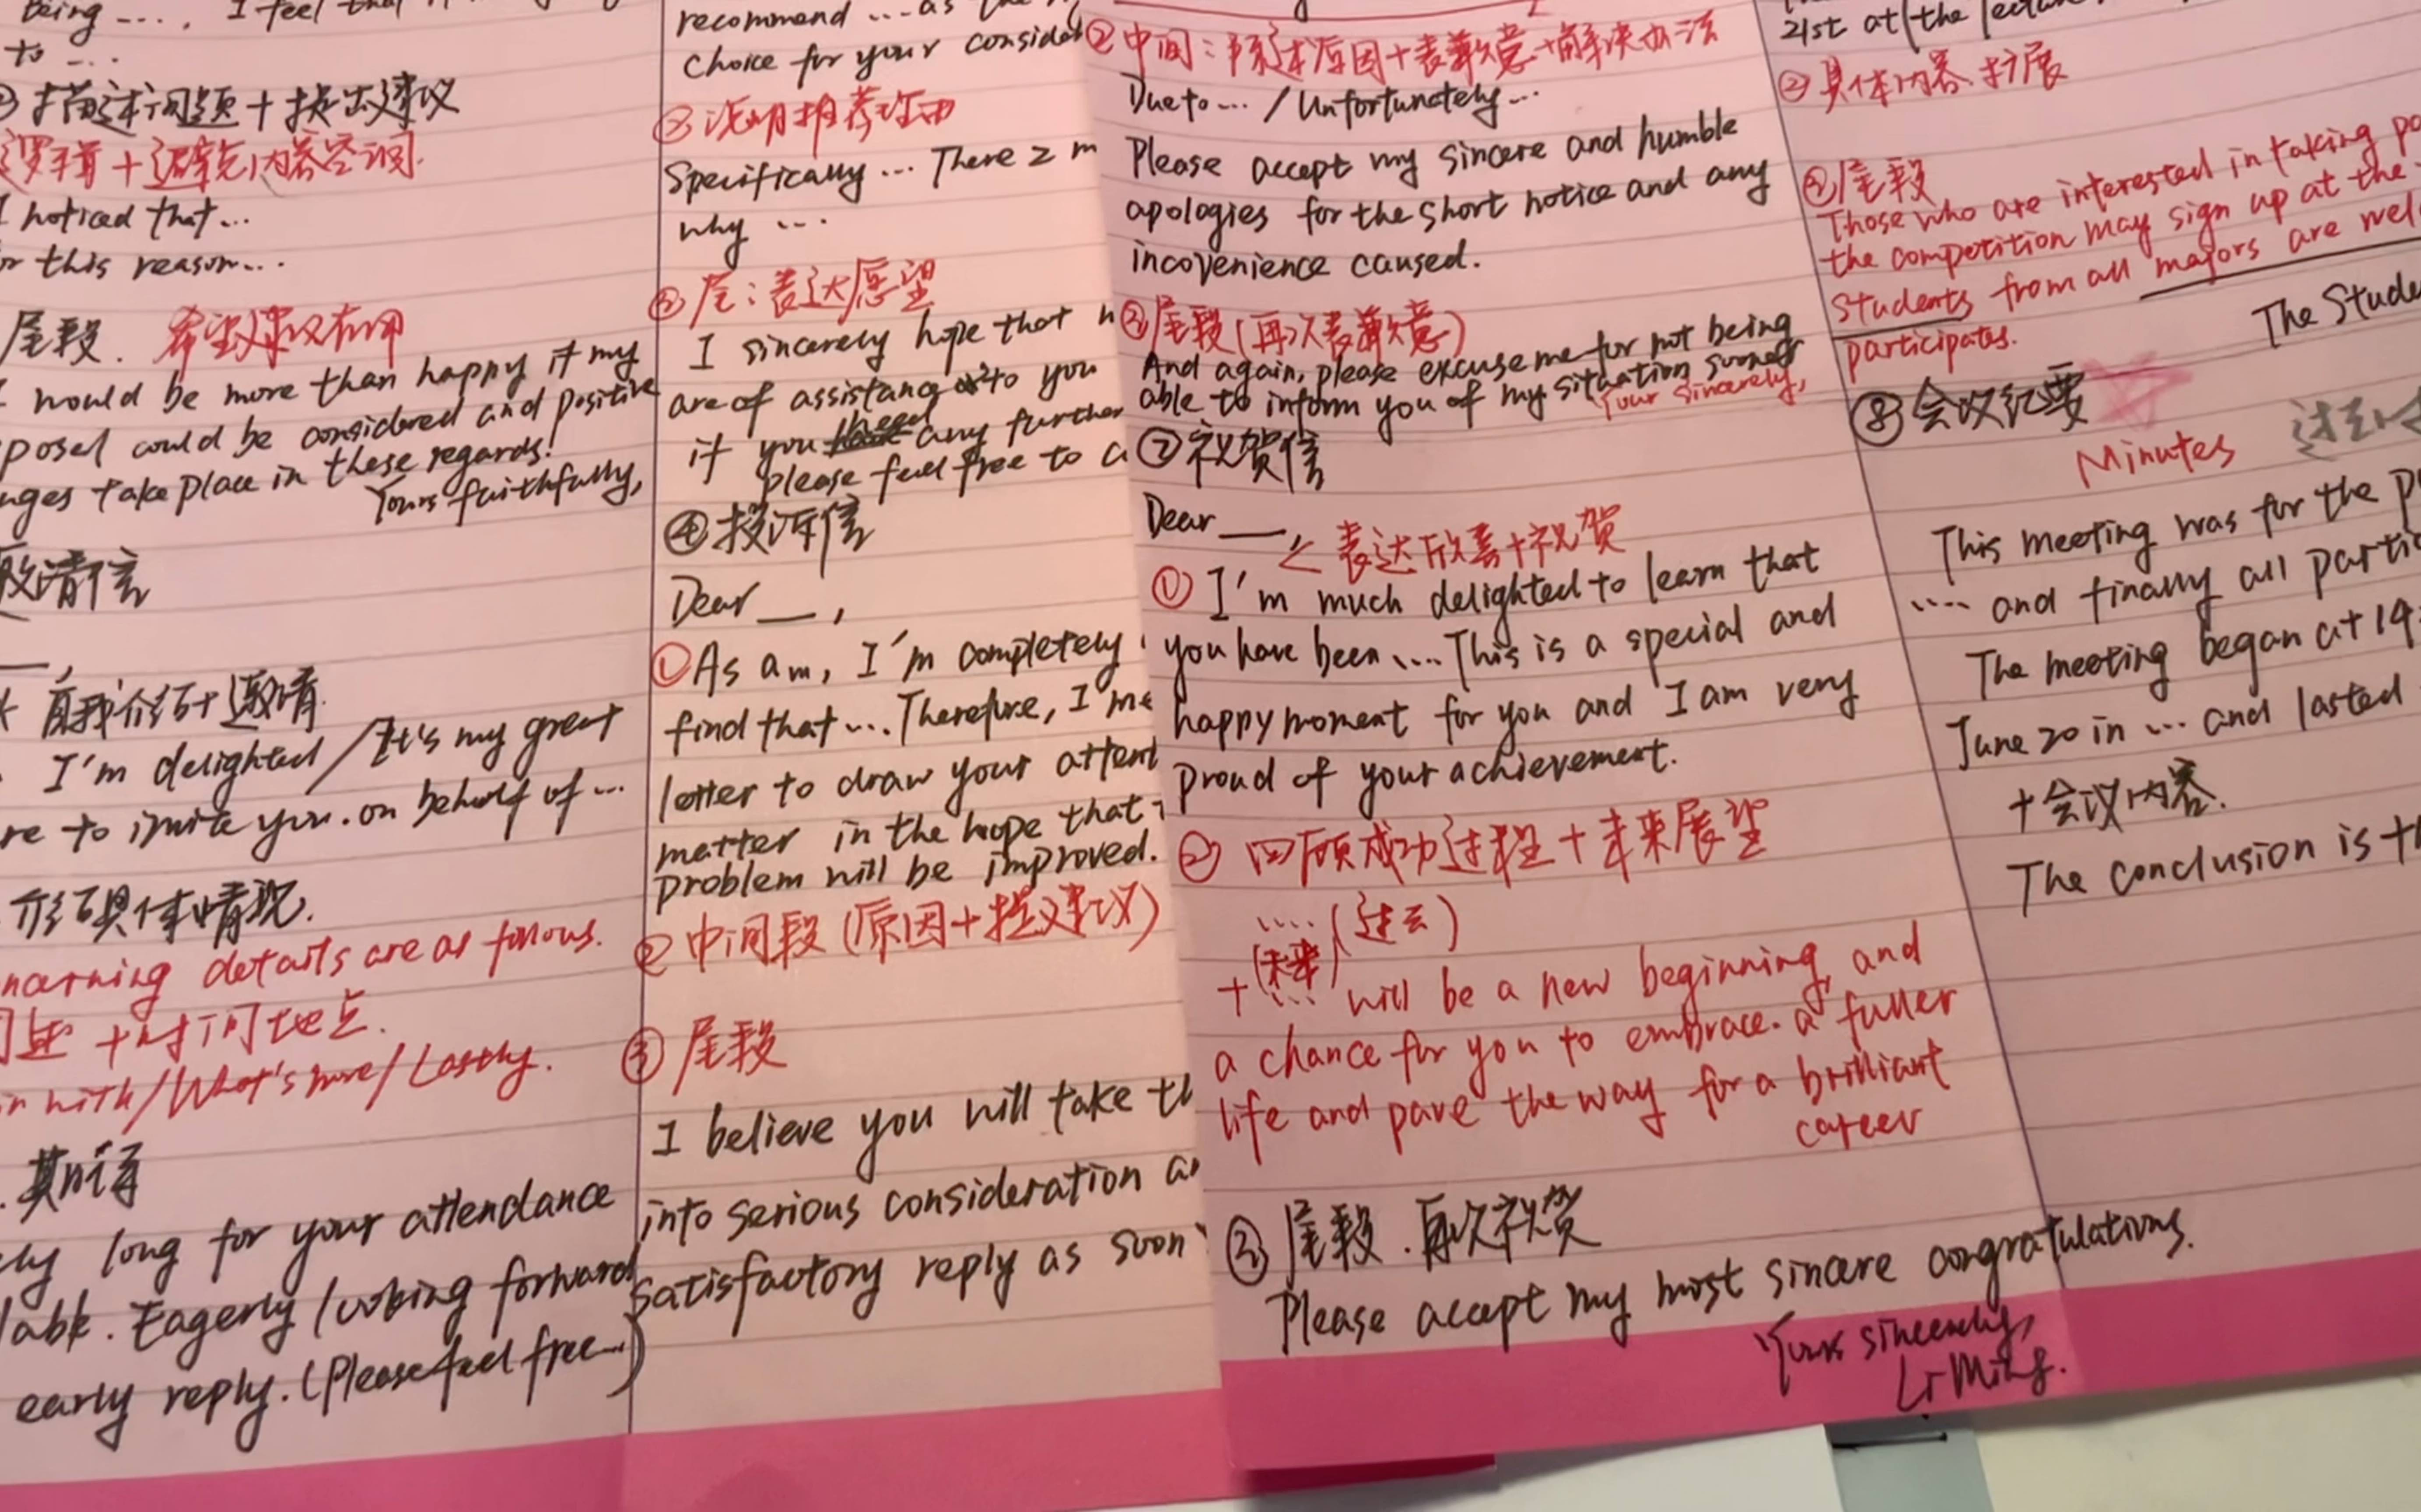 being ..., I feel that
to ...
描述问题+提出建议
逻辑+避免内容空洞.
I noticed that...
for this reason...
尾段. 希望建议有用
I would be more than happy if my
posal could be considered and positive
nges take place in these regards!
Yours faithfully,
邀请信
自我介绍+邀请
I'm delighted/It's my great
re to invite you. on behalf of...
介绍具体情况.
ncerning details are as follows.
+时间地点.
in with/What's more/Lastly.
期待
ly long for your attendance
lable. Eagerly looking forward
early reply. (Please feel free...)
recommend ... as the
choice for your consider
② 说明推荐理由
Specifically ... There 2 m
why ...
③ 尾:表达愿望
I sincerely hope that
are of assistance to you
if you need any further
please feel free to c
④投诉信
Dear __,
①As am, I'm completely
find that... Therefore, I'm
letter to draw your attent
matter in the hope that
problem will be improved.
② 中间段(原因+提建议)
③ 尾段
I believe you will take th
into serious consideration a
satisfactory reply as soon
②中间:陈述原因+表歉意+解决办法
Due to ... /Unfortunately...
Please accept my sincere and humble
apologies for the short notice and any
incovenience caused.
③尾段(再次表歉意)
And again, please excuse me for not being
able to inform you of my situation sooner
Your sincerely,
⑦祝贺信
Dear __,
<表达欣喜+祝贺
① I'm much delighted to learn that
you have been .... This is a special and
happy moment for you and I am very
proud of your achievement.
② 回顾成功过程+未来展望
....(过去)
+(未来)
... will be a new beginning, and
a chance for you to embrace. a fuller
life and pave the way for a brilliant
career
③ 尾段. 再次祝贺
Please accept my most sincere congratulations.
Yours sincerely,
Li Ming.
21st at the lecture
② 具体内容扩展
③尾段
Those who are interested in taking pa
the competition may sign up at the
students from all majors are wel
participates.
The Stude
⑧会议纪要
Minutes
This meeting was for the p
.... and finally all partic
The meeting began at 14:
June 20 in ... and lasted
+会议内容.
The conclusion is th